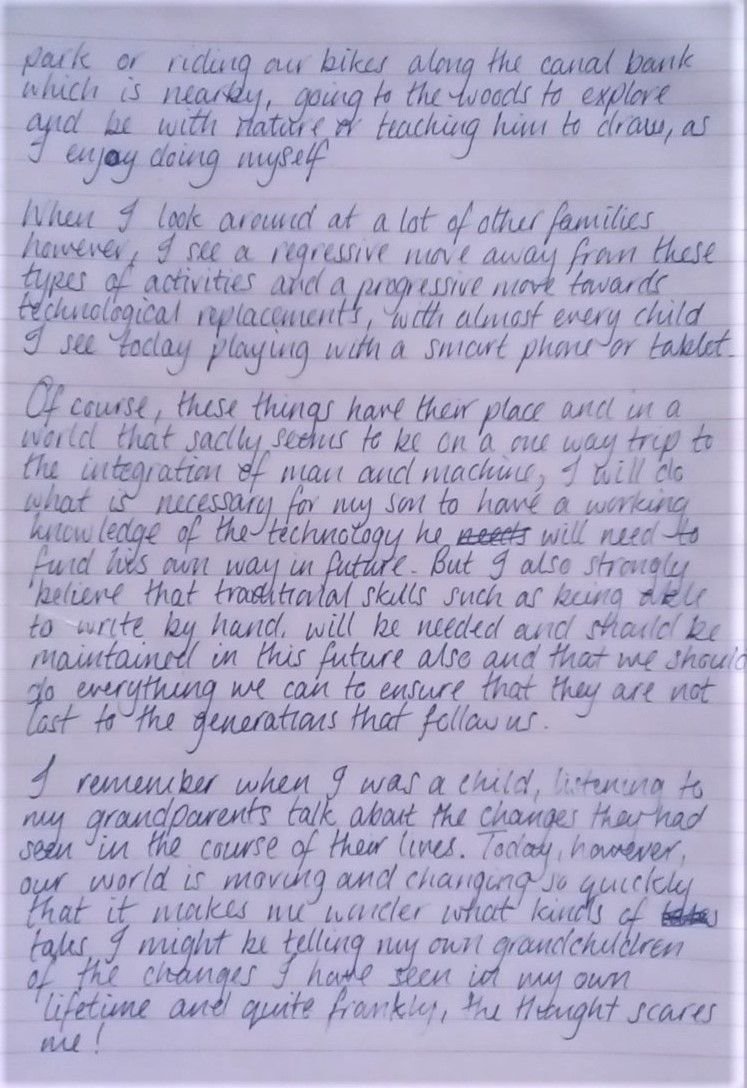 park or riding our bikes along the canal bank
which is nearby, going to the woods to explore
and be with nature or teaching him to draw, as
I enjoy doing myself
When I look around at a lot of other families
however, I see a regressive move away from these
types of activities and a progressive move towards
technological replacements, with almost every child
I see today playing with a smart phone or tablet.
Of course, these things have their place and in a
world that sadly seems to be on a one way trip to
the integration of man and machine, I will do
what is necessary for my son to have a working
knowledge of the technology he needs will need to
find his own way in future. But I also strongly
believe that traditional skills such as being able
to write by hand, will be needed and should be
maintained in this future also and that we should
do everything we can to ensure that they are not
lost to the generations that follow us.
I remember when I was a child, listening to
my grandparents talk about the changes they had
seen in the course of their lives. Today, however,
our world is moving and changing so quickly
that it makes me wonder what kinds of
tales I might be telling my own grandchildren
of the changes I have seen in my own
lifetime and quite frankly, the thought scares
me!